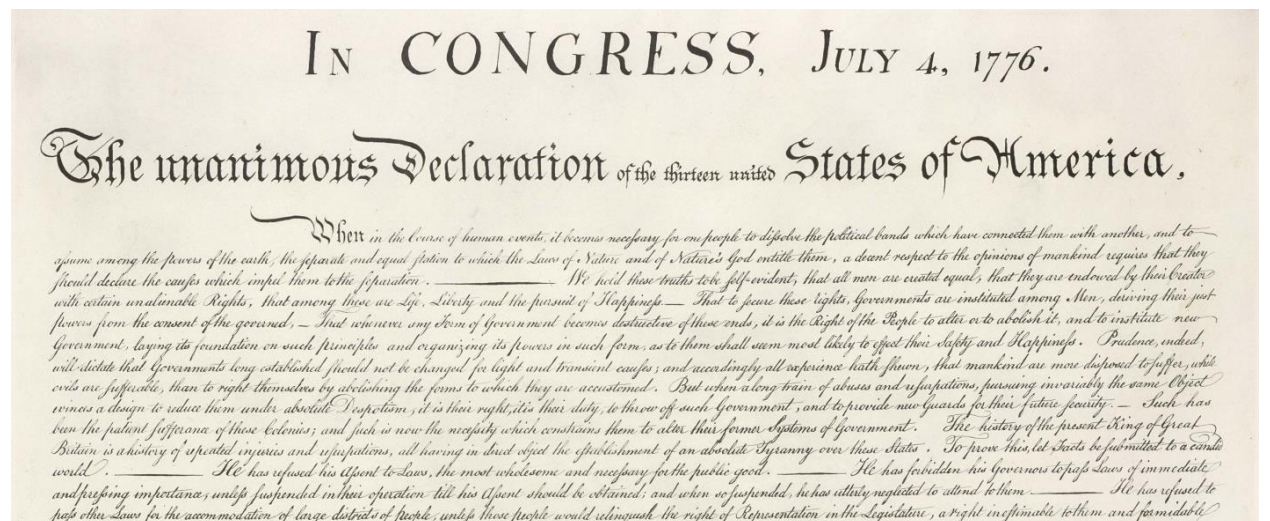 In CONGRESS, July 4, 1776.
The unanimous Declaration of the thirteen united States of America,
When in the Course of human events, it becomes necessary for one people to dissolve the political bands which have connected them with another, and to
assume among the powers of the earth, the separate and equal station to which the Laws of Nature and of Nature's God entitle them, a decent respect to the opinions of mankind requires that they
should declare the causes which impel them to the separation. — We hold these truths to be self-evident, that all men are created equal, that they are endowed by their Creator
with certain unalienable Rights, that among these are Life, Liberty and the pursuit of Happiness — That to secure these rights, Governments are instituted among Men, deriving their just
powers from the consent of the governed, — That whenever any Form of Government becomes destructive of these ends, it is the Right of the People to alter or to abolish it, and to institute new
Government, laying its foundation on such principles and organizing its powers in such form, as to them shall seem most likely to effect their Safety and Happiness. Prudence, indeed,
will dictate that Governments long established should not be changed for light and transient causes; and accordingly all experience hath shewn, that mankind are more disposed to suffer, while
evils are sufferable, than to right themselves by abolishing the forms to which they are accustomed. But when a long train of abuses and usurpations, pursuing invariably the same Object
evinces a design to reduce them under absolute Despotism, it is their right, it is their duty, to throw off such Government, and to provide new Guards for their future security. — Such has
been the patient sufferance of these Colonies; and such is now the necessity which constrains them to alter their former Systems of Government. The history of the present King of Great
Britain is a history of repeated injuries and usurpations, all having in direct object the establishment of an absolute Tyranny over these States. To prove this, let Facts be submitted to a candid
world. — He has refused his Assent to Laws, the most wholesome and necessary for the public good. — He has forbidden his Governors to pass Laws of immediate
and pressing importance, unless suspended in their operation till his Assent should be obtained; and when so suspended, he has utterly neglected to attend to them. — He has refused to
pass other Laws for the accommodation of large districts of people, unless those people would relinquish the right of Representation in the Legislature, a right inestimable to them and formidable